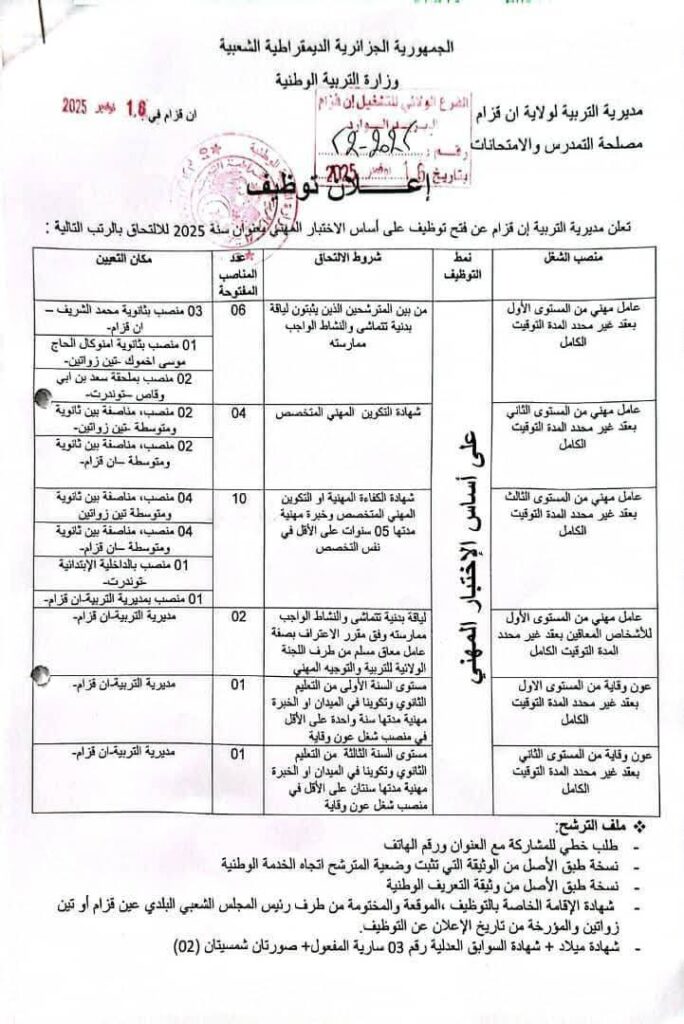 الجمهورية الجزائرية الديمقراطية الشعبية
وزارة التربية الوطنية
مديرية التربية لولاية ان قزام
ان قزام في: 16 نوفمبر 2025
مصلحة التمدرس والامتحانات
الفرع الولائي للتشغيل إن قزام
البريد الوارد
رقم:
بتاريخ 16 نوفمبر 2025
إعـــــلان توظيف
تعلن مديرية التربية إن قزام عن فتح توظيف على أساس الاختبار المهني بعنوان سنة 2025 للالتحاق بالرتب التالية :
منصب الشغل
نمط التوظيف
شروط الالتحاق
عدد المناصب المفتوحة
مكان التعيين
على أساس الإختبار المهني
عامل مهني من المستوى الأول
بعقد غير محدد المدة التوقيت
الكامل
من بين المترشحين الذين يثبتون لياقة
بدنية تتماشى والنشاط الواجب
ممارسته
06
03 منصب بثانوية محمد الشريف –
ان قزام-
01 منصب بثانوية امنوكال الحاج
موسى اخموك -تين زواتين-
02 منصب بملحقة سعد بن ابي
وقاص –توندرت-
عامل مهني من المستوى الثاني
بعقد غير محدد المدة التوقيت
الكامل
شهادة التكوين المهني المتخصص
04
02 منصب، مناصفة بين ثانوية
ومتوسطة -تين زواتين-
02 منصب، مناصفة بين ثانوية
ومتوسطة –ان قزام-
عامل مهني من المستوى الثالث
بعقد غير محدد المدة التوقيت
الكامل
شهادة الكفاءة المهنية او التكوين
المهني المتخصص وخبرة مهنية
مدتها 05 سنوات على الأقل في
نفس التخصص
10
04 منصب، مناصفة بين ثانوية
ومتوسطة تين زواتين
04 منصب، مناصفة بين ثانوية
ومتوسطة –ان قزام-
01 منصب بالداخلية الإبتدائية
-توندرت-
01 منصب بمديرية التربية-ان قزام-
عامل مهني من المستوى الأول
للأشخاص المعاقين بعقد غير محدد
المدة التوقيت الكامل
لياقة بدنية تتماشى والنشاط الواجب
ممارسته وفق مقرر الاعتراف بصفة
عامل معاق مسلم من طرف اللجنة
الولائية للتربية والتوجيه المهني
02
مديرية التربية-ان قزام-
عون وقاية من المستوى الاول
بعقد غير محدد المدة التوقيت
الكامل
مستوى السنة الأولى من التعليم
الثانوي وتكوينا في الميدان او الخبرة
مهنية مدتها سنة واحدة على الأقل
في منصب شغل عون وقاية
01
مديرية التربية-ان قزام-
عون وقاية من المستوى الثاني
بعقد غير محدد المدة التوقيت
الكامل
مستوى السنة الثالثة من التعليم
الثانوي وتكوينا في الميدان او الخبرة
مهنية مدتها سنتان على الأقل في
منصب شغل عون وقاية
01
مديرية التربية-ان قزام-
❖ ملف الترشح:
- طلب خطي للمشاركة مع العنوان ورقم الهاتف
- نسخة طبق الأصل من الوثيقة التي تثبت وضعية المترشح اتجاه الخدمة الوطنية
- نسخة طبق الأصل من وثيقة التعريف الوطنية
- شهادة الإقامة الخاصة بالتوظيف ،الموقعة والمختومة من طرف رئيس المجلس الشعبي البلدي عين قزام أو تين
زواتين والمؤرخة من تاريخ الإعلان عن التوظيف.
- شهادة ميلاد + شهادة السوابق العدلية رقم 03 سارية المفعول+ صورتان شمسيتان (02)